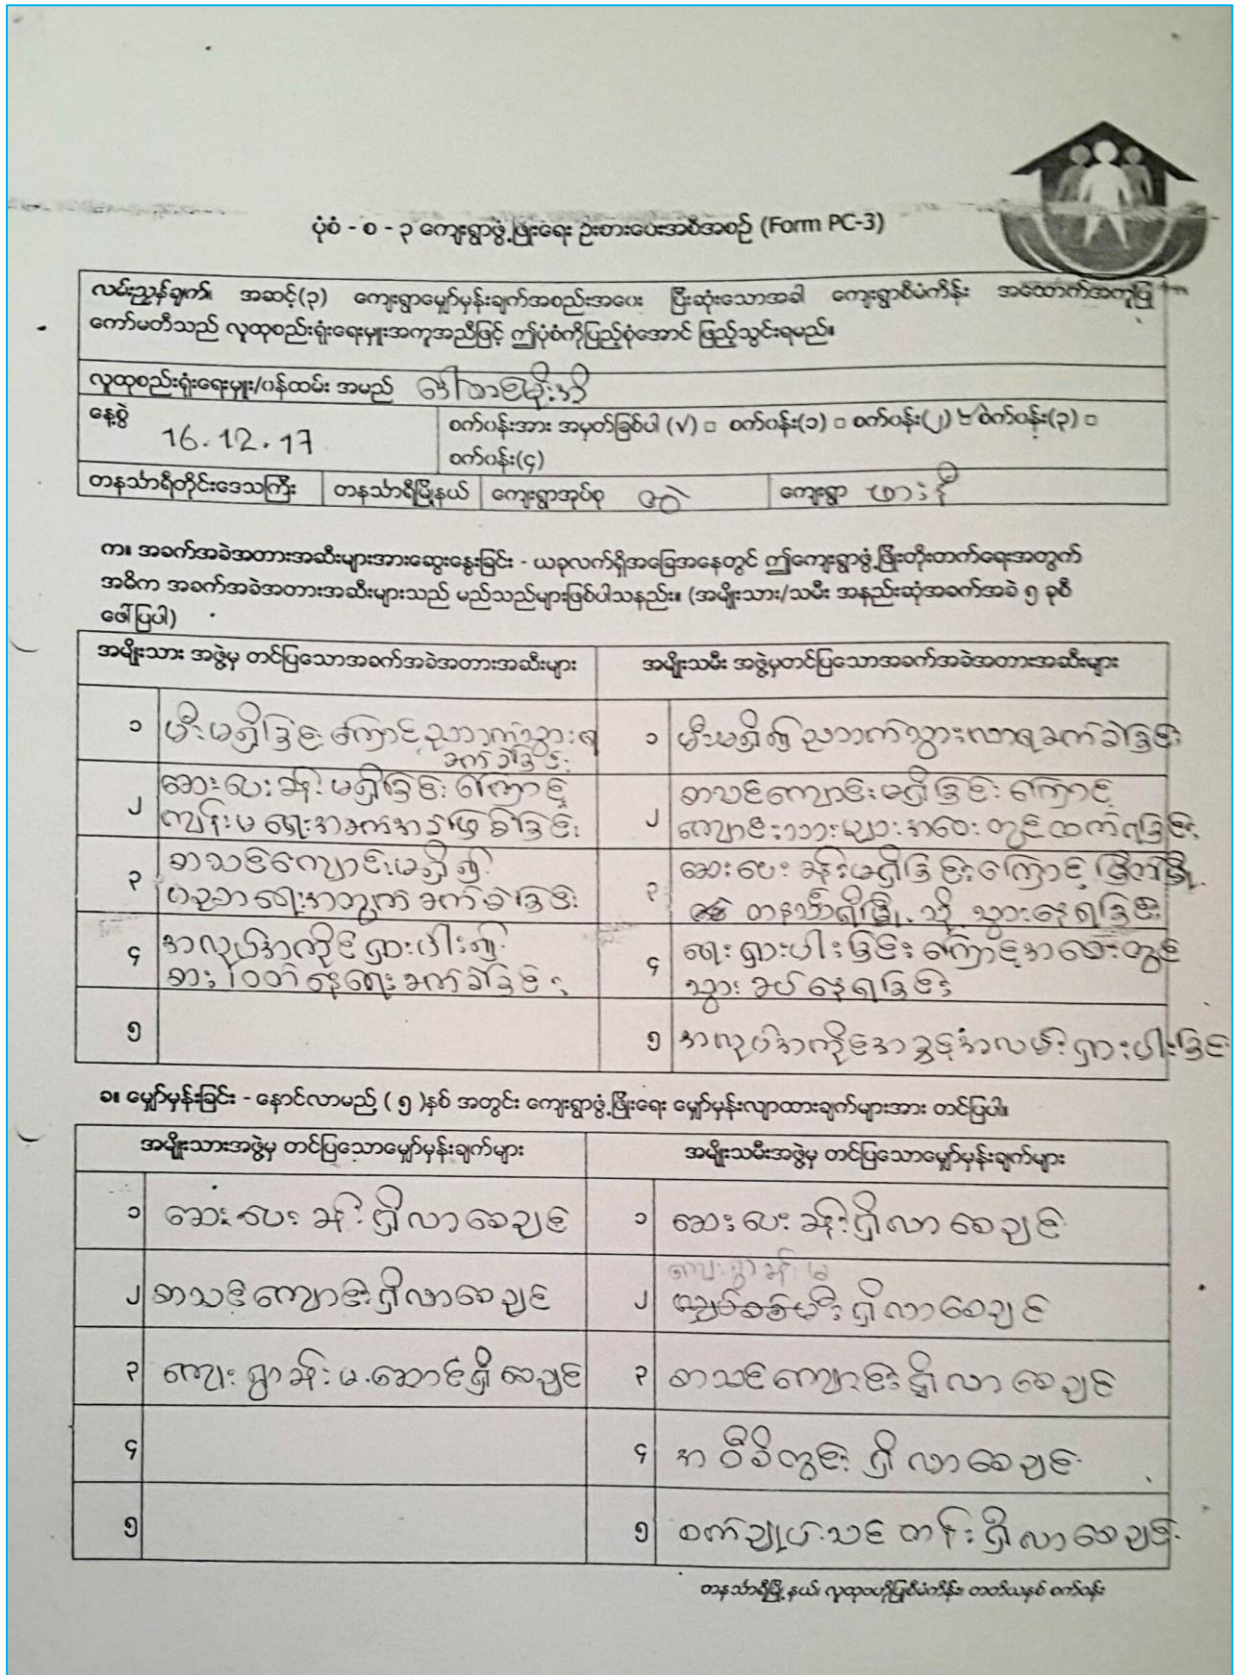 ပုံစံ - စ - ၃ ကျေးရွာဖွံ့ဖြိုးရေး ဦးစားပေးအစီအစဉ် (Form PC-3)
လမ်းညွှန်ချက်။ အဆင့်(၃) ကျေးရွာမျှော်မှန်းချက်အစည်းအဝေး ပြီးဆုံးသောအခါ ကျေးရွာစီမံကိန်း အထောက်အကူပြု
ကော်မတီသည် လူထုစည်းရုံးရေးမှူးအကူအညီဖြင့် ဤပုံစံကိုပြည့်စုံအောင် ဖြည့်သွင်းရမည်။
လူထုစည်းရုံးရေးမှူး/ဝန်ထမ်း အမည်
နေ့စွဲ 16.12.17
စက်ဝန်းအား အမှတ်ခြစ်ပါ (√) □ စက်ဝန်း(၁) □ စက်ဝန်း(၂) ☑ စက်ဝန်း(၃) □
စက်ဝန်း(၄)
တနင်္သာရီတိုင်းဒေသကြီး တနင်္သာရီမြို့နယ် ကျေးရွာအုပ်စု ကျေးရွာ
က။ အခက်အခဲအတားအဆီးများအားဆွေးနွေးခြင်း - ယခုလက်ရှိအခြေအနေတွင် ဤကျေးရွာဖွံ့ဖြိုးတိုးတက်ရေးအတွက်
အဓိက အခက်အခဲအတားအဆီးများသည် မည်သည်များဖြစ်ပါသနည်း။ (အမျိုးသား/သမီး အနည်းဆုံအခက်အခဲ ၅ ခုစီ
ဖေါ်ပြပါ)
အမျိုးသား အဖွဲ့မှ တင်ပြသောအခက်အခဲအတားအဆီးများ အမျိုးသမီး အဖွဲ့မှတင်ပြသောအခက်အခဲအတားအဆီးများ
၁ မီးမရှိခြင်းကြောင့်ညဘက်သွားရ
ခက်ခဲခြင်း
၁ မီးမရှိ၍ညဘက်သွားလာရခက်ခဲခြင်း
၂ ဆေးပေးခန်းမရှိခြင်းကြောင့်
ကျန်းမာရေးအခက်အခဲဖြစ်ခြင်း
၂ စာသင်ကျောင်းမရှိခြင်းကြောင့်
ကျောင်းသားများအဝေးတွင်ထက်ရခြင်း
၃ စာသင်ကျောင်းမရှိ၍
ပညာရေးအတွက်ခက်ခဲခြင်း
၃ ဆေးပေးခန်းမရှိခြင်းကြောင့် မြိတ်မြို့
တနင်္သာရီမြို့သို့ သွားနေရခြင်း
၄ အလုပ်အကိုင်ရှားပါး၍
စားဝတ်နေရေးခက်ခဲခြင်း
၄ ရေရှားပါးခြင်းကြောင့်အဝေးတွင်
သွားခပ်နေရခြင်း
၅
၅ အလုပ်အကိုင်အခွင့်အလမ်းရှားပါးခြင်း
ခ။ မျှော်မှန်းခြင်း - နောင်လာမည် ( ၅ )နှစ် အတွင်း ကျေးရွာဖွံ့ဖြိုးရေး မျှော်မှန်းလျာထားချက်များအား တင်ပြပါ။
အမျိုးသားအဖွဲ့မှ တင်ပြသောမျှော်မှန်းချက်များ အမျိုးသမီးအဖွဲ့မှ တင်ပြသောမျှော်မှန်းချက်များ
၁ ဆေးပေးခန်းရှိလာစေချင် ၁ ဆေးပေးခန်းရှိလာစေချင်
၂ စာသင်ကျောင်းရှိလာစေချင် ၂ ကျေးရွာခန်းမ
လျှပ်စစ်မီးရှိလာစေချင်
၃ ကျေးရွာခန်းမဆောင်ရှိစေချင် ၃ စာသင်ကျောင်းရှိလာစေချင်
၄ ၄ အဝီစိတွင်းရှိလာစေချင်
၅ ၅ စက်ချုပ်သင်တန်းရှိလာစေချင်
တနင်္သာရီမြို့နယ်၊ လူထုဗဟိုပြုစီမံကိန်း၊ တတိယနှစ် စက်ဝန်း